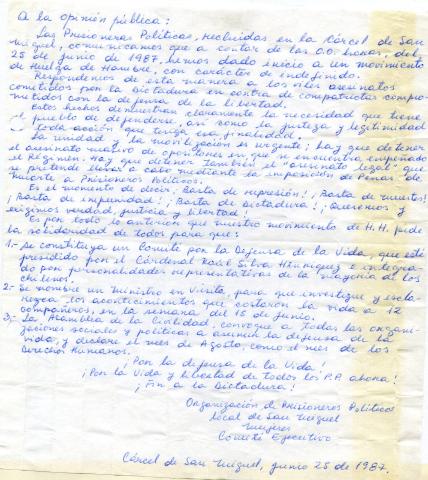 A la opinión pública:
Las Prisioneras Políticas, recluidas en la Cárcel de San
Miguel, comunicamos que a contar de las 0.0. horas, del
25 de junio de 1987, hemos dado inicio a un movimiento
de Huelga de Hambre, con carácter de indefinido.
Respondemos de esta manera a los viles asesinatos
cometidos por la Dictadura en contra de compatriotas compro-
metidos con la defensa de la libertad.
Estos hechos demuestran claramente la necesidad que tiene
el pueblo de defenderse, así como la justeza y legitimidad
de toda acción que tenga esa finalidad.
La unidad y la movilización es urgente; hay que detener
el asesinato masivo de opositores en que se encuentra empeñado
el Régimen. Hay que detener también el "asesinato legal" que
se pretende llevar a cabo mediante la imposición de Penas de
Muerte a Prisioneros Políticos.
Es el momento de decir ¡Basta de represión! ¡Basta de muertes!
¡Basta de impunidad! ¡Basta de Dictadura! ¡Queremos y
exigimos verdad, justicia y libertad!
Es por todo lo anterior que nuestro movimiento de H.H. pide
la solidaridad de todos para que:
1.- Se constituya un Comité por la Defensa de la Vida, que esté
presidido por el Cardenal Raúl Silva Henríquez e integra-
do por personalidades representativas de la mayoría de los
chilenos.
2.- Se nombre un Ministro en Visita, para que investigue y escla-
rezca los acontecimientos que costaron la vida a 12
compañeros, en la semana del 15 de junio.
3.- La Asamblea de la Civilidad, convoque a todas las organi-
zaciones sociales y políticas a asumir la defensa de la
vida, y declare el mes de Agosto, como el mes de los
Derechos Humanos.
¡Por la defensa de la Vida!
¡Por la Vida y libertad de todos los P.P. ahora!
¡Fin a la Dictadura!
Organización de Prisioneros Políticos
local de San Miguel
Mujeres
Comité Ejecutivo
Cárcel de San Miguel, junio 25 de 1987.